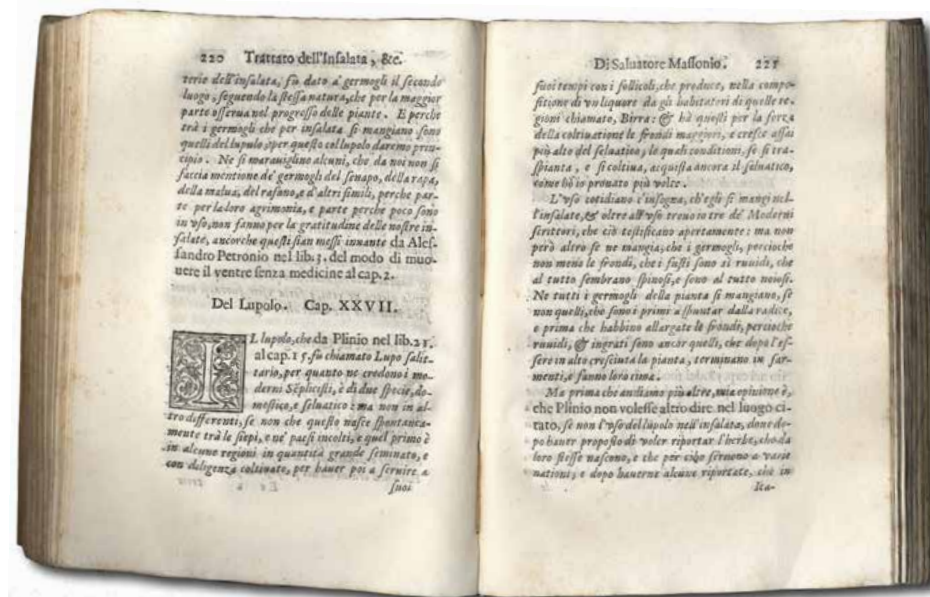 220 Trattato dell'Insalata, &c.
terie dell'insalata, fù dato a' germogli il secondo
luogo, seguendo la stessa natura, che per la maggior
parte osserua nel progresso delle piante. E perche
trà i germogli che per insalata si mangiano sono
quelli del lupulo, per questo col lupolo daremo prin-
cipio. Ne si marauiglino alcuni, che da noi non si
faccia mentione de' germogli del senapo, della rapa,
della malua, del rafano, e d'altri simili, perche par-
te per la loro agrimonia, e parte perche poco sono
in vso, non fanno per la gratitudine delle nostre in-
salate, ancorche questi sian messi innante da Ales-
sandro Petronio nel lib. 3. del modo di muo-
uere il ventre senza medicine al cap. 2.
Del Lupolo. Cap. XXVII.
IL lupolo, che da Plinio nel lib. 21.
al cap. 15. fù chiamato Lupo salit-
tario, per quanto ne credono i mo-
derni Séplicisti, è di due specie, do-
mestico, e seluatico: ma non in al-
tro differenti, se non che questo nasce spontanea-
mente trà le siepi, e ne' paesi incolti, e quel primo è
in alcune regioni in quantità grande seminato, e
con diligenza coltiuato, per hauer poi a seruire a
suoi
Di Saluatore Massonio. 221
suoi tempi con i follicoli, che produce, nella compo-
sitione di vn liquore da gli habitatori di quelle re-
gioni chiamato, Birra: & hà questi per la forza
della coltiuatione le frondi maggiori, e cresce assai
più alto del seluatico, le quali conditioni, se si tra-
spianta, e si coltiua, acquista ancora il seluatico,
come hò io prouato più volte.
L'vso cotidiano c'insegna, ch'egli si mangi nel-
l'insalate, & oltre all'vso trouo io tre de' Moderni
scrittori, che ciò testificano apertamente: ma non
però altro se ne mangia, che i germogli, percioche
non meno le frondi, che i fusti sono sì ruuidi, che
al tutto sembrano spinosi, e sono al tutto noiosi.
Ne tutti i germogli della pianta si mangiano, se
non quelli, che sono i primi a spuntar dalla radice,
e prima che habbino allargate le frondi, percioche
ruuidi, & ingrati sono ancor quelli, che dopo l'es-
sere in alto cresciuta la pianta, terminano in sar-
menti, e fanno loro cima.
Ma prima che andiamo più oltre, mia opinione è,
che Plinio non volesse altro dire nel luogo ci-
tato, se non l'vso del lupolo nell'insalata, doue do-
po hauer proposto di voler riportar l'herbe, che da
loro stesse nascono, e che per cibo seruono a varie
nationi, e dopo hauerne alcune riportate, che in
Ita-